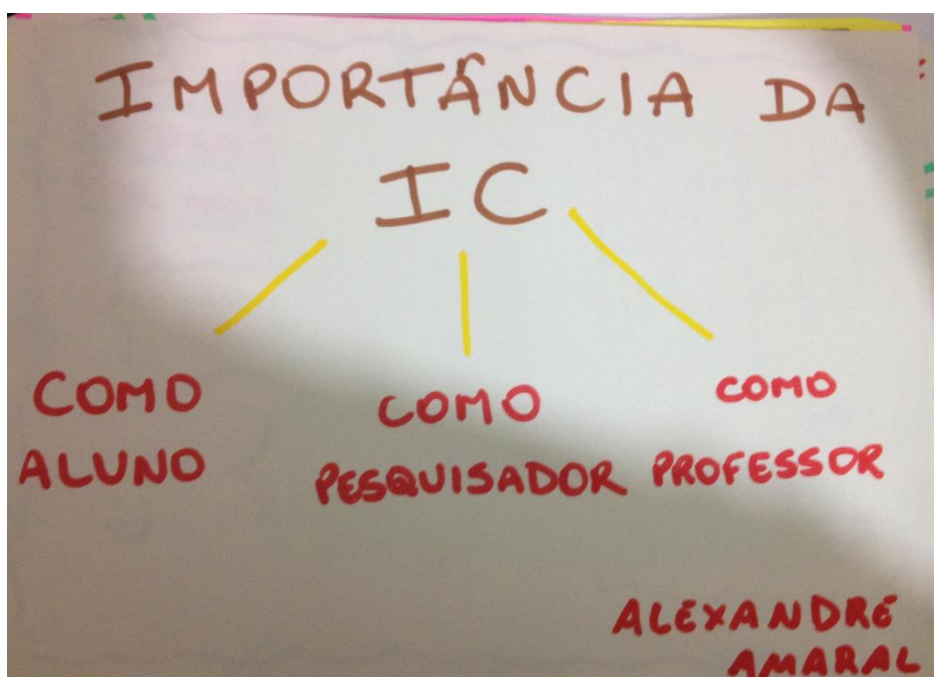 IMPORTÂNCIA DA
IC
COMO
ALUNO
COMO
PESQUISADOR
COMO
PROFESSOR
ALEXANDRE
AMARAL